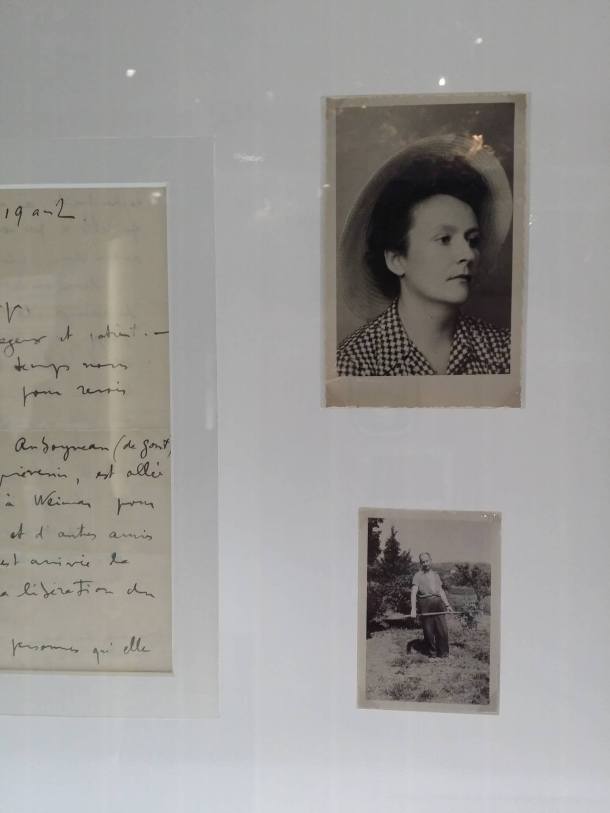 19 an2
et patient.
temps nous
pour revoir
Auboyneau (de Gort)
, est allée
à Weimar pour
et d'autres amis
est arrivée la
a libération du
personnes qu'elle